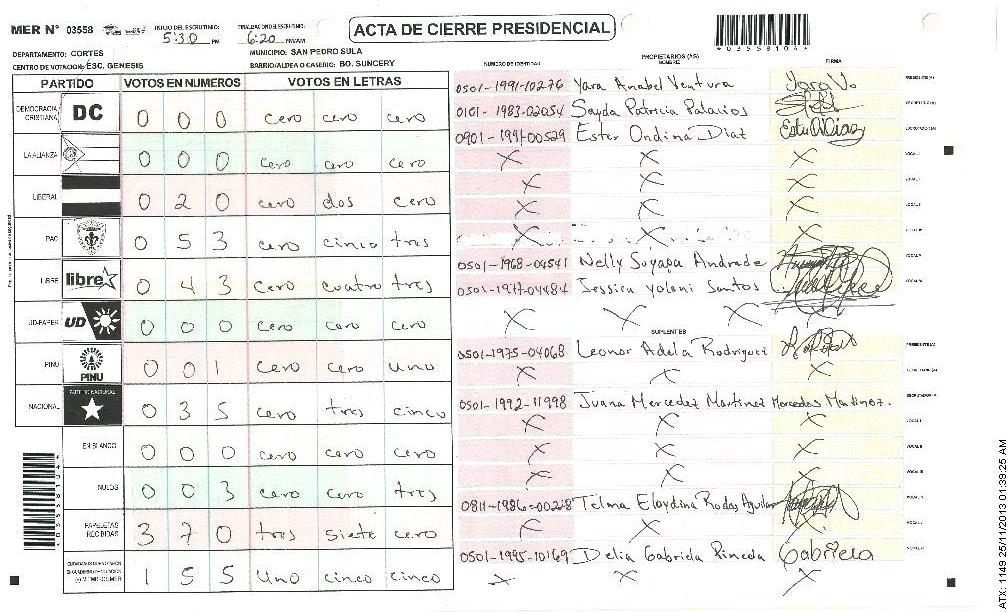 MER Nº 03558
INICIO DEL ESCRUTINIO: 5:30 PM
FINALIZACION DEL ESCRUTINIO: 6:20 PM/AM
ACTA DE CIERRE PRESIDENCIAL
*03558104*
DEPARTAMENTO: CORTES
MUNICIPIO: SAN PEDRO SULA
CENTRO DE VOTACION: ESC. GENESIS
BARRIO/ALDEA O CASERIO: BO. SUNCERY
PARTIDO VOTOS EN NUMEROS VOTOS EN LETRAS
DEMOCRACIA CRISTIANA DC 0 0 0 cero cero cero
LA ALIANZA 0 0 0 cero cero cero
LIBERAL 0 2 0 cero dos cero
PAC 0 5 3 cero cinco tres
LIBRE libre 0 4 3 cero cuatro tres
UD-FAPER UD 0 0 0 cero cero cero
PINU PINU 0 0 1 cero cero uno
NACIONAL PARTIDO NACIONAL 0 3 5 cero tres cinco
EN BLANCO 0 0 0 cero cero cero
NULOS 0 0 3 cero cero tres
PAPELETAS RECIBIDAS 3 7 0 tres siete cero
1 5 5 Uno cinco cinco
PROPIETARIOS (AS)
NUMERO DE IDENTIDAD NOMBRE FIRMA
0501-1991-10276 Yara Anabel Ventura Yara V. PRESIDENTE (A)
0101-1983-02054 Sayda Patricia Palacios SECRETARIO (A)
0901-1991-00529 Ester Ondina Diaz Ester O Diaz ESCRUTADOR (A)
X X X VOCAL I
X X X VOCAL II
X X X
X X X
0501-1968-04541 Nelly Suyapa Andrade
0501-1977-04484 Jessica Yoloni Santos
X X X X
SUPLENTES
0501-1975-04068 Leonor Adela Rodriguez PRESIDENTE (A)
X X X SECRETARIO (A)
0501-1992-11998 Juana Mercedez Martinez Mercedes Martinez. ESCRUTADOR (A)
X X X VOCAL I
X X X VOCAL II
X X X VOCAL III
0811-1986-00228 Telma Eloydina Rodas Aguilar
X X X
0501-1995-10169 Delia Gabriela Pineda Gabriela
X X X
ATX: 1149 25/11/2013 01:39:25 AM